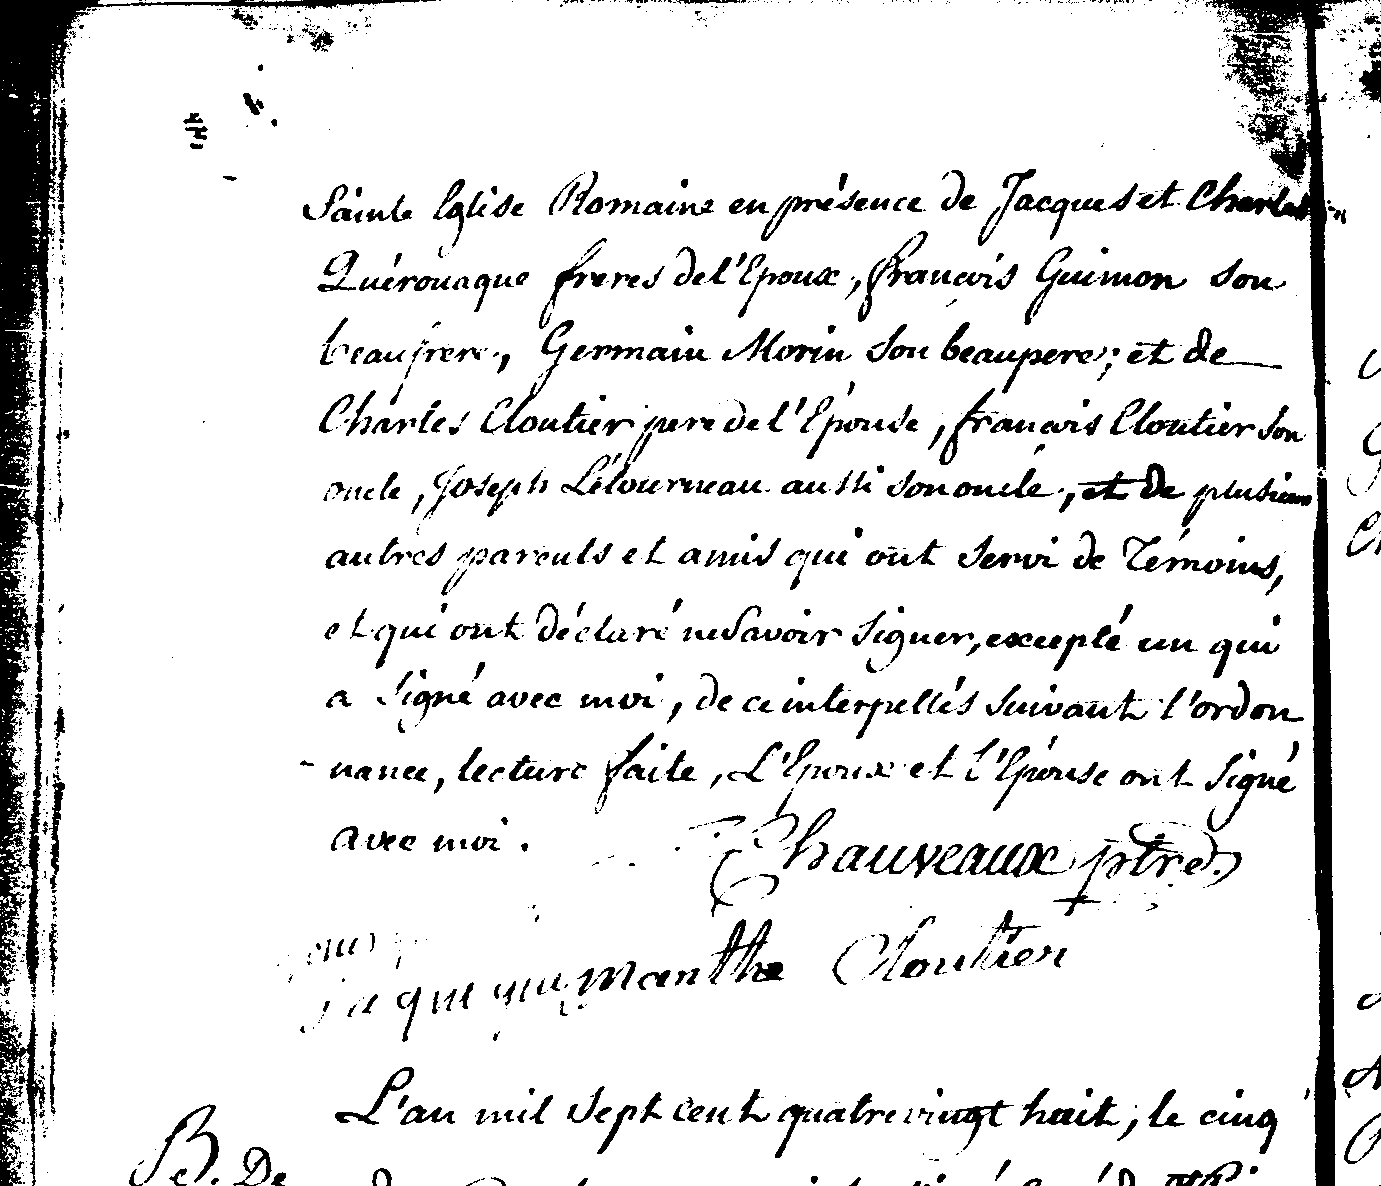 Sainte Eglise Romaine en présence de Jacques et Charles
Quérouaque freres de l'Epoux, françois Guimon son
beaufrere, Germain Morin son beaupere; et de
Charles Cloutier pere de l'Epouse, françois Cloutier son
oncle, Joseph Létourneau aussi son oncle, et de plusieurs
autres parents et amis qui ont servi de Témoins,
et qui ont déclaré ne savoir signer, excepté un qui
a signé avec moi, de ce interpellés suivant l'ordon
-nance, lecture faite, L'Epoux et l'Epouse ont signé
avec moi.
Chauveaux ptre.
manthe Cloutier
L'an mil sept cent quatre vingt huit, le cinq
B. De